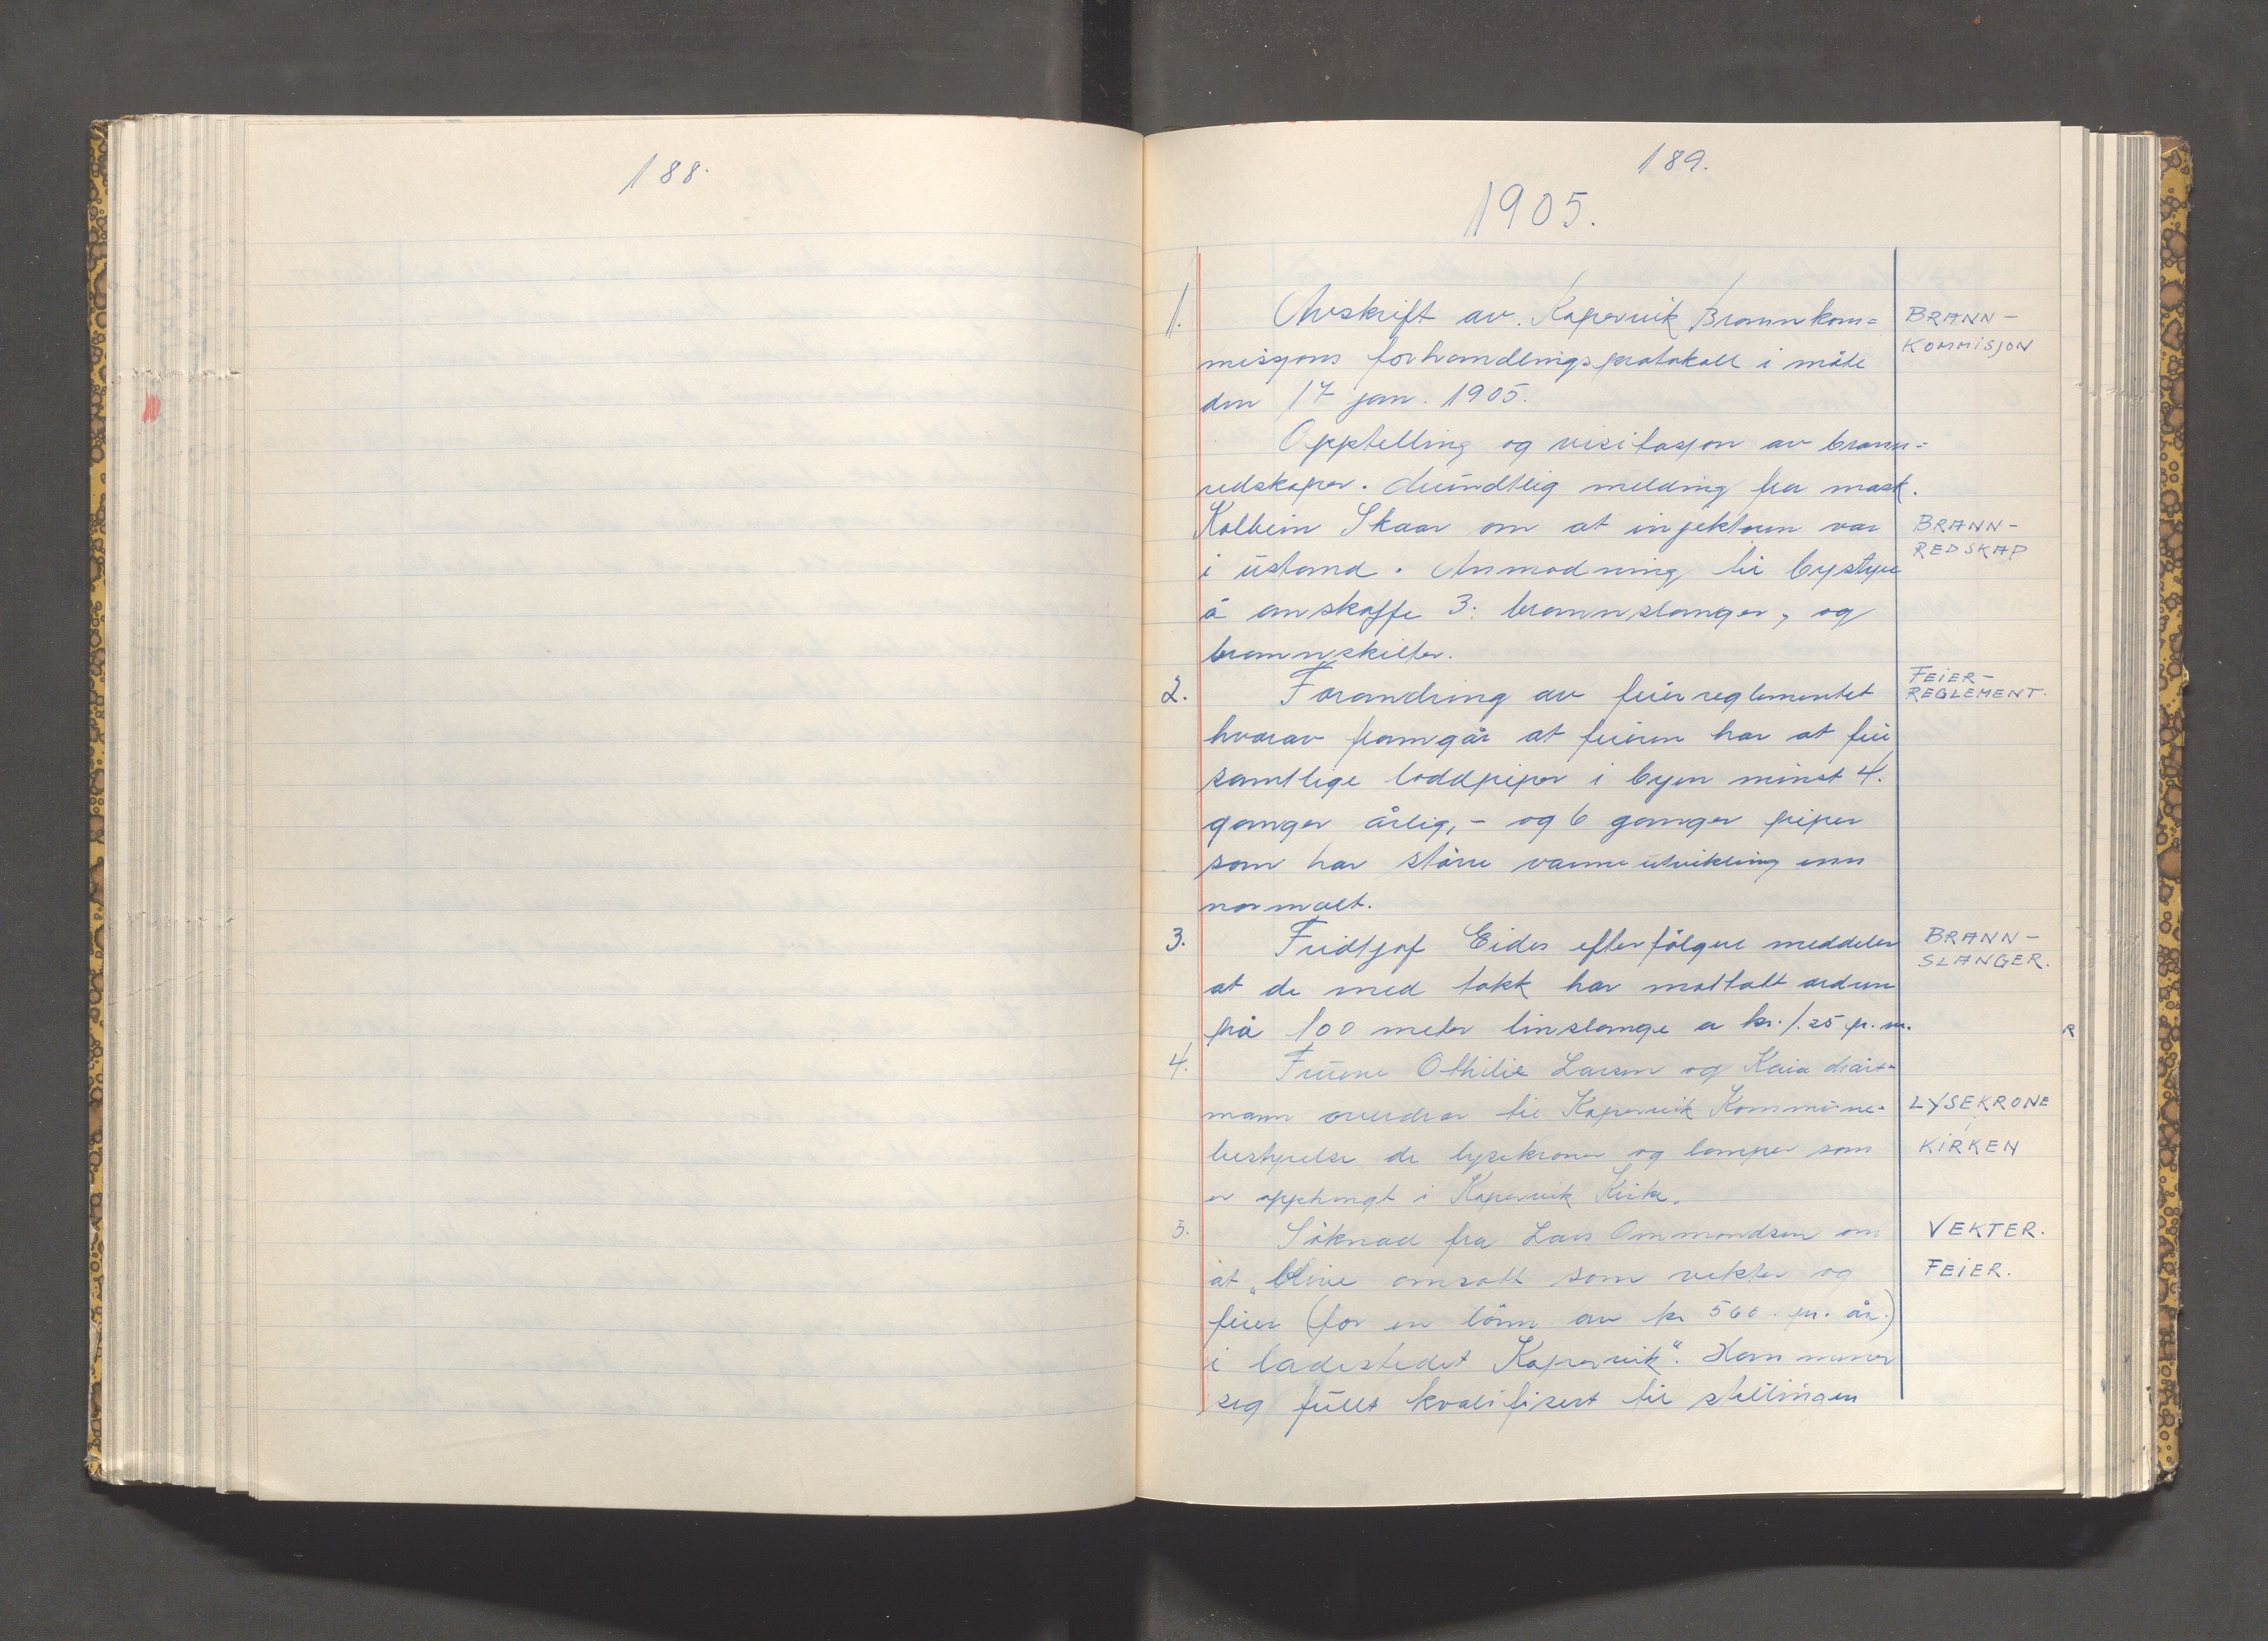 188.
189.
1905.
1. Avskrift av Kopervik Brannkom=
BRANN-
misjons forhandlingsprotokoll i måte
KOMMISJON
den 17 jan. 1905.
Opptelling og visitasjon av brann=
redskaper. Mundtlig melding fra mask.
Kolbein Skaar om at injektoren var
BRANN-
i ustand. Anmodning til bystyre
REDSKAP
å anskaffe 3. brannslanger, og
brannskilter.
2. Forandring av feierreglementet
FEIER-
REGLEMENT.
hvorav framgår at feieren har at feie
samtlige loddpiper i byen minst 4.
ganger årlig, - og 6 ganger piper
som har större varmeutvikling enn
normalt.
3. Fridtjof Eides efterfölgere meddeler
BRANN-
SLANGER.
at de med takk har mottatt ordren
på 100 meter linslange a kr. 1.25 pr. m.
R
4. Fruene Othilie Larsen og Kaia
mann overdrar til Kopervik Kommune-
LYSEKRONE
i
bestyrelse de lysekroner og lamper som
KIRKEN
er opphengt i Kopervik Kirke.
5. Söknad fra Lars Ommundsen om
VEKTER.
at „blive ansatt som vekter og
FEIER.
feier (for en lönn av kr 560. pr. år.)
i ladestedet Kopervik". Han mener
seg fullt kvalifisert til stillingen